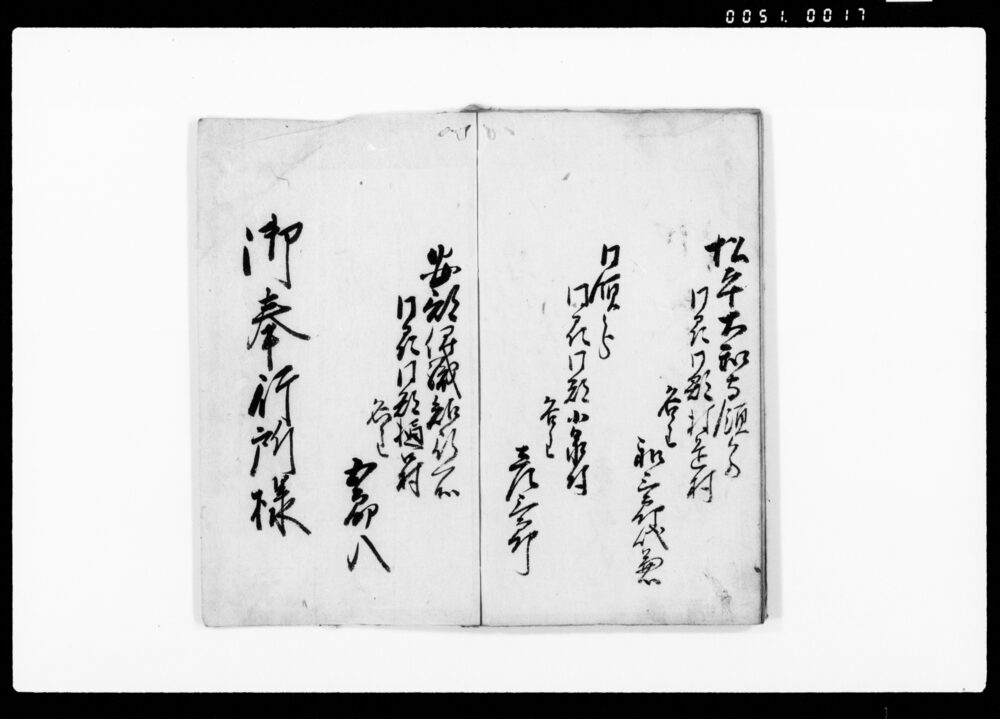 0051.0017
松平大和守領分
同州同郡 村
名主
和三郎代兼
同領分
同州同郡小泉村
名主
彦三郎
安部 知行所
同州同郡樋 村
名主
郡八
御奉行所様